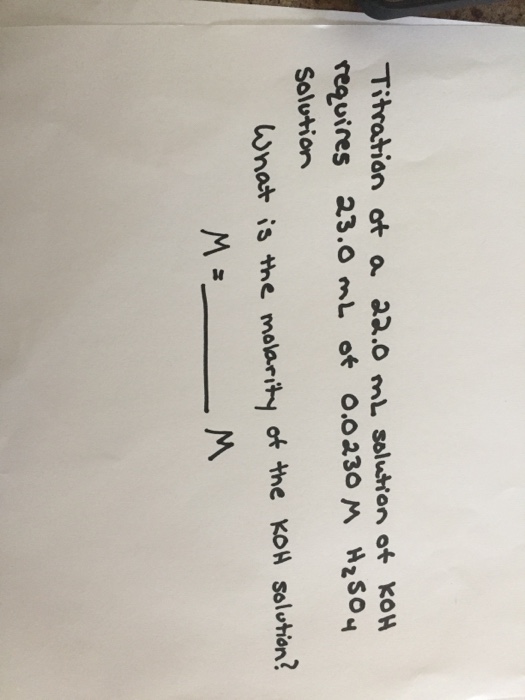 Titration of a 22.0 mL solution of KOH
requires 23.0 mL of 0.0230 M H₂SO₄
Solution
What is the molarity of the KOH solution?
M = ______ M